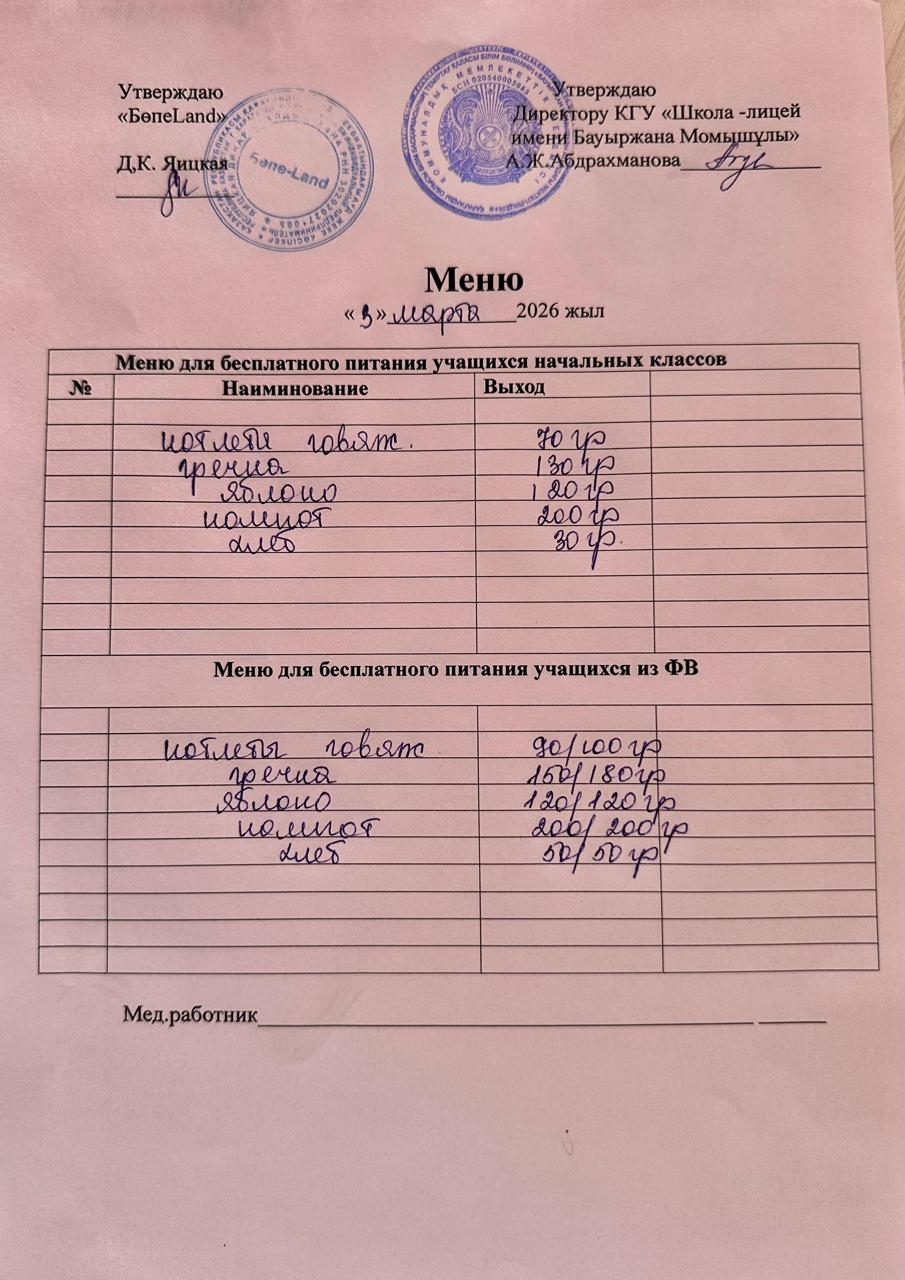 Утверждаю
«БөпеLand»
Д,К. Яицкая
Бөпе-Land
Утверждаю
Директору КГУ «Школа -лицей
имени Бауыржана Момышұлы»
А.Ж.Абдрахманова
Меню
«3» марта 2026 жыл
Меню для бесплатного питания учащихся начальных классов
№ Наиминование Выход
котлеты говяж. 70 гр
гречка 130 гр
яблоко 120 гр
компот 200 гр
хлеб 30 гр.
Меню для бесплатного питания учащихся из ФВ
котлеты говяж 90/100 гр
гречка 150/180гр
яблоко 120/120 гр
компот 200/200 гр
хлеб 50/50 гр
Мед.работник